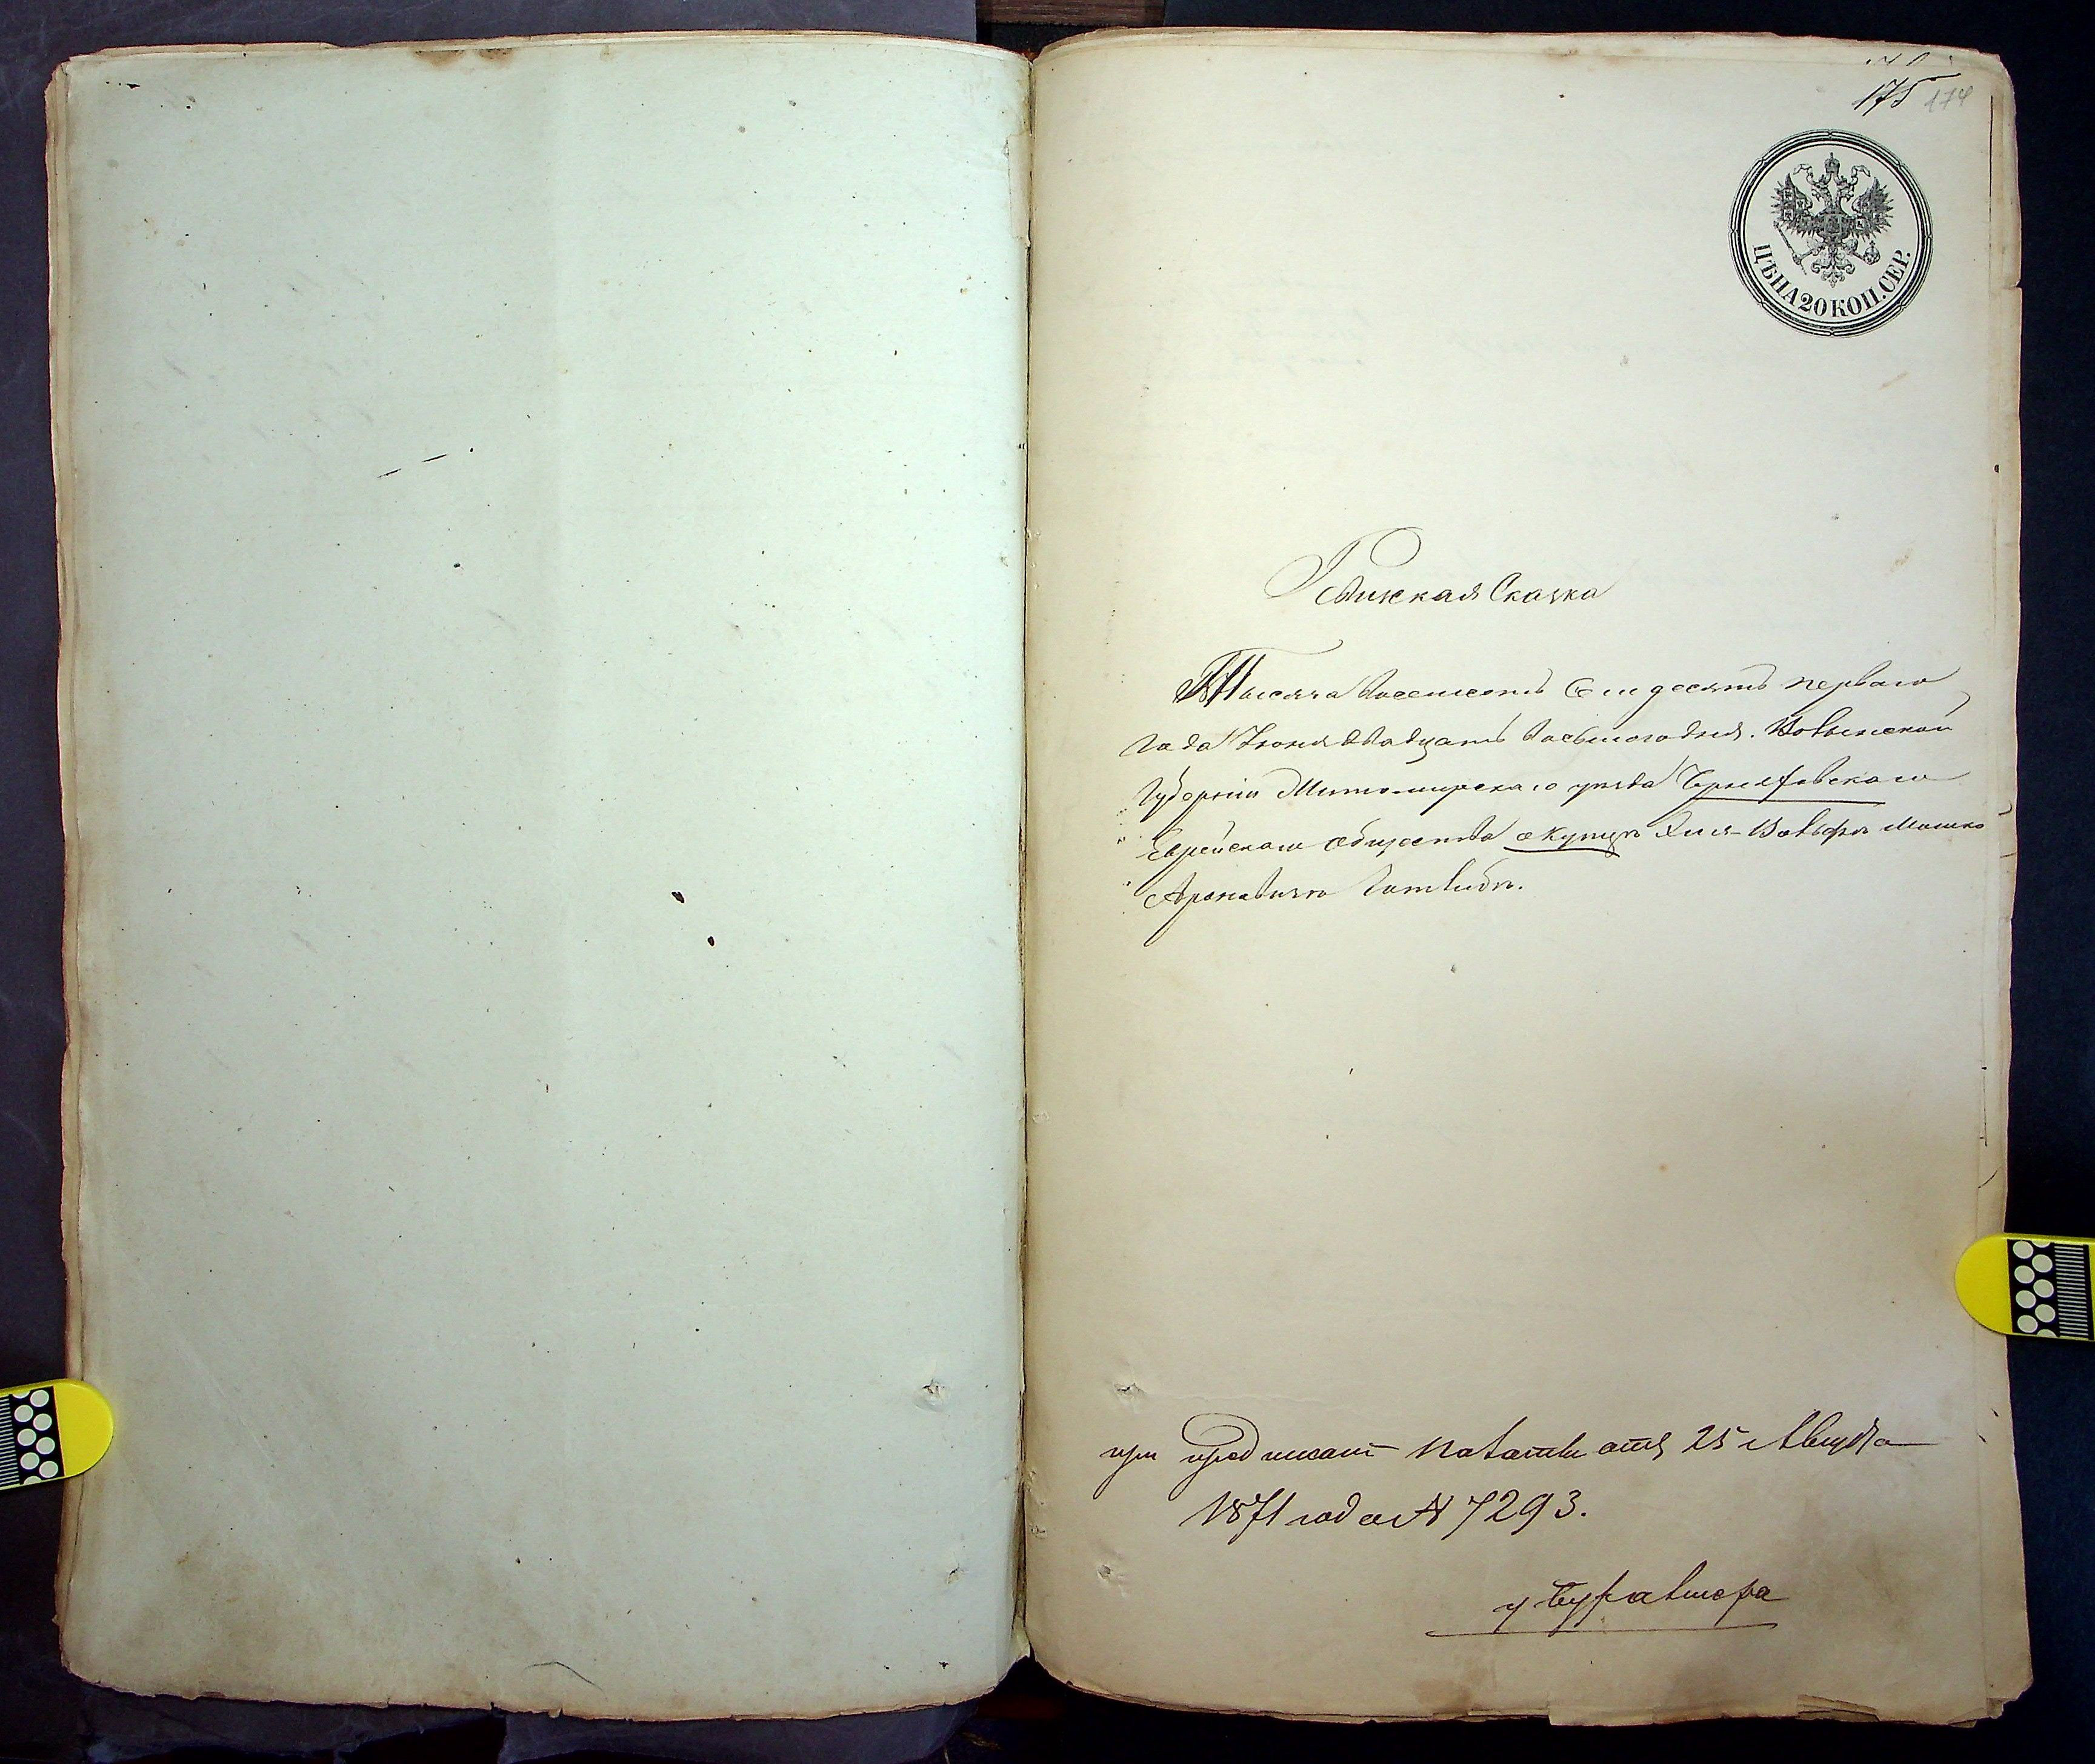 175 174
ЦѢНА 20 КОП. СЕР.
Ревизская Сказка
Тысяча восемсотъ семдесятъ перваго
года Июня двадцать восьмого дня. Волынской
Губернии Житомирскаго уѣзда Черняховскаго
Еврейскаго общества о купцѣ Хаим-Вольфѣ Мошко
Ароновичѣ Готлибѣ.
при предписании Палаты отъ 25 Августа
1871 года № 7293.